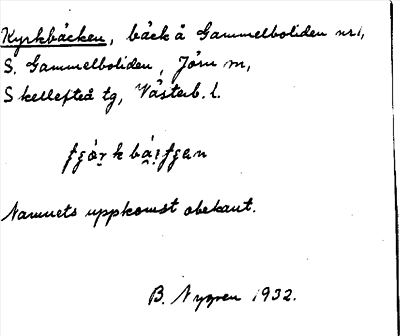 Kyrkbäcken, bäck å Gammelboliden nr 1,
S. Gammelboliden, Jörn sn,
Skellefteå tg, Västerb. l.
Namnets uppkomst obekant.
B. Nygren 1932.